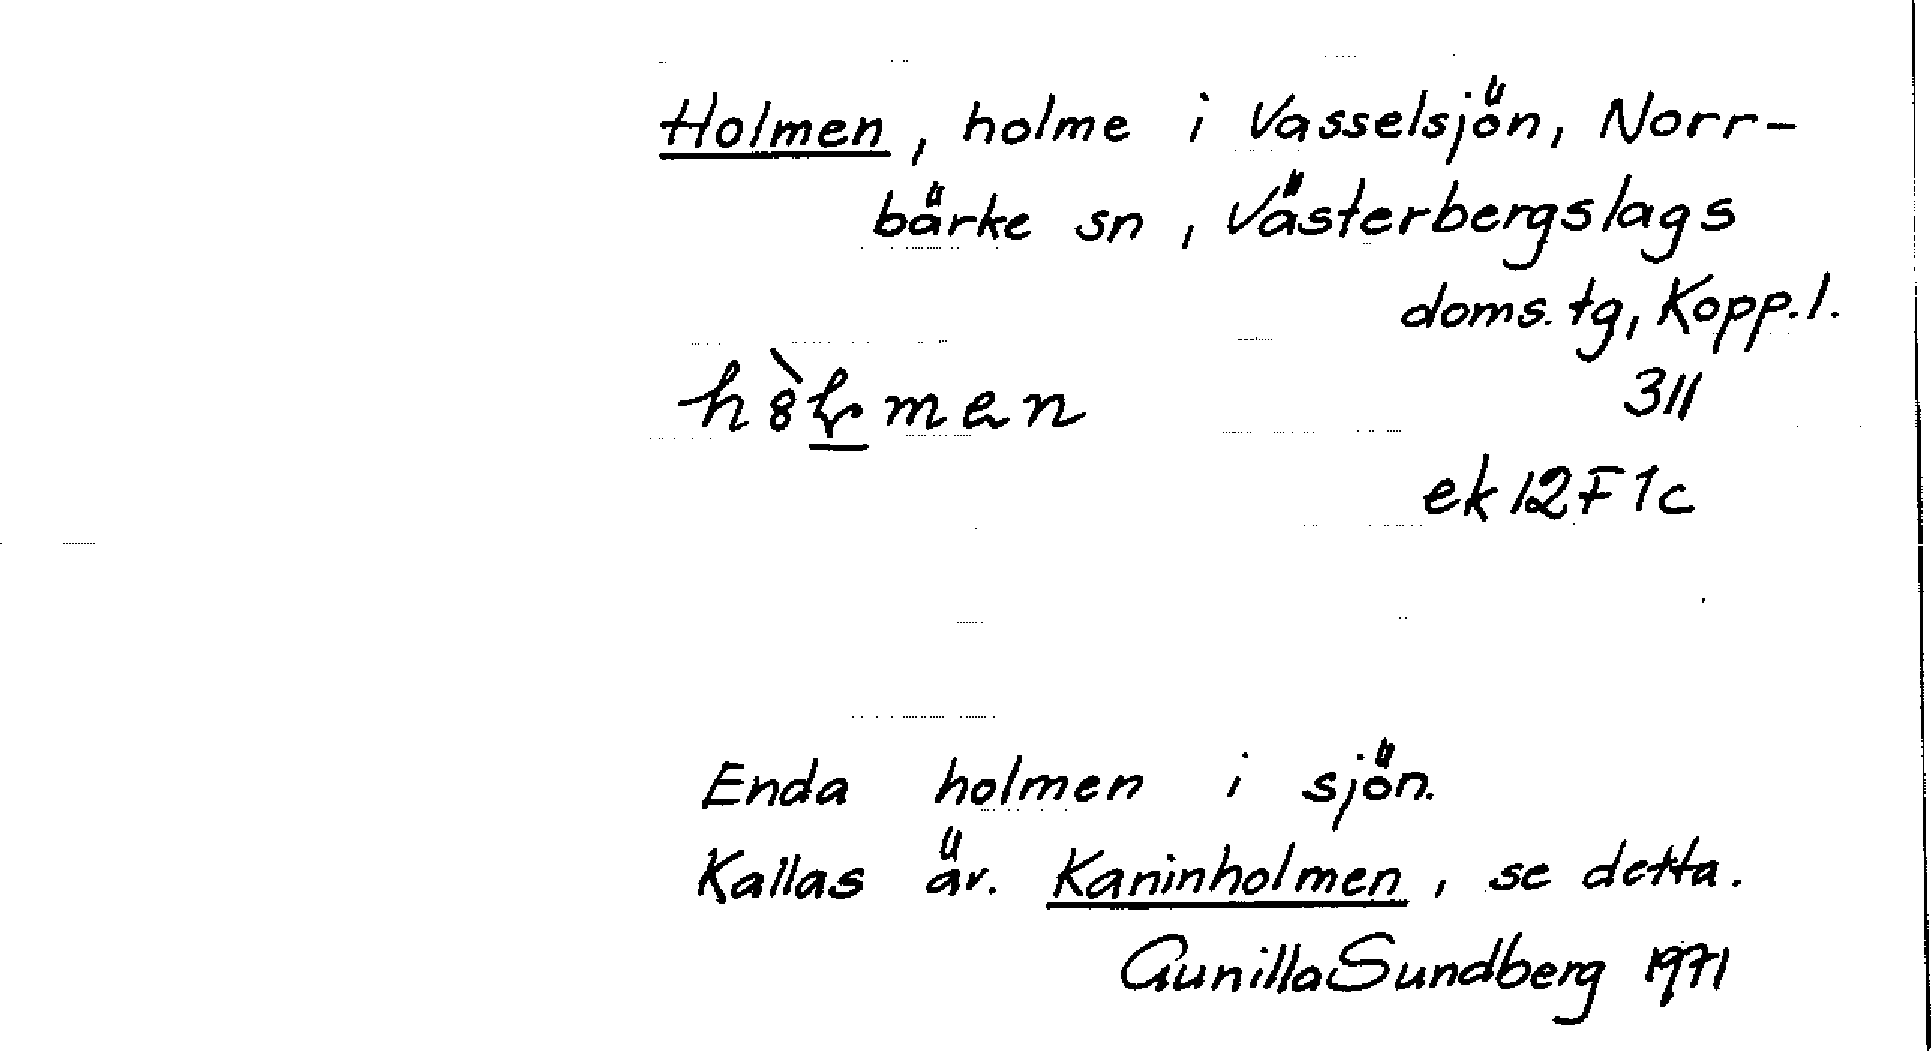 Holmen, holme i Vasselsjön, Norr-
bärke sn, Västerbergslags
doms. tg, Kopp. l.
311
ek 12F1c
Enda holmen i sjön.
Kallas äv. Kaninholmen, se detta.
Gunilla Sundberg 1971